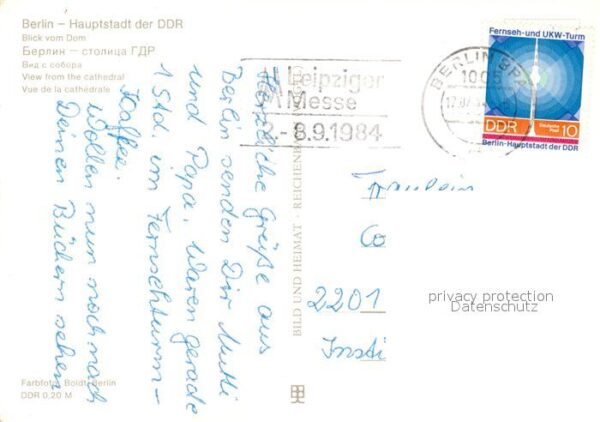 Berlin – Hauptstadt der DDR
Blick vom Dom
Берлин – столица ГДР
Вид с собора
View from the cathedral
Vue de la cathédrale
Herzliche Grüße aus
Berlin senden Dir Mutti
und Papa. Waren gerade
1 Std. im Fernsehturm-
Kaffee.
Wollen nun noch nach
Deinen Büchern sehen
Farbfoto: Boldt, Berlin
DDR 0,20 M
BILD UND HEIMAT · REICHENB
Leipziger
Messe
2.-8.9.1984
BERLIN BPA
Fernseh- und UKW-Turm
DDR
Deutsche Post
10
Berlin-Hauptstadt der DDR
Fräulein
Co
2201
privacy protection
Datenschutz